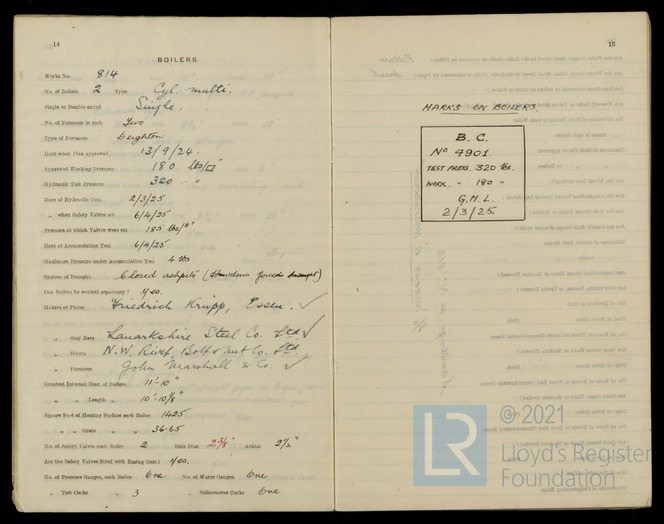 14
BOILERS.
Works No. 814
No. of Boilers 2 Type Cyl. multi.
Single or Double-ended Single.
No. of Furnaces in each Two
Type of Furnaces Deighton
Date when Plan approved 13/9/24.
Approved Working Pressure 180 lbs/□"
Hydraulic Test Pressure 320 " "
Date of Hydraulic Test 2/3/25
" when Safety Valves set 6/4/25
Pressure at which Valves were set 185 lbs/□"
Date of Accumulation Test 6/4/25
Maximum Pressure under Accumulation Test 4 lbs
System of Draught Closed ashpits (Howdens forced draught)
Can Boilers be worked separately? Yes.
Makers of Plates Friedrich Krupp, Essen. ✓
" Stay Bars Lanarkshire Steel Co. Ltd ✓
" Rivets N.W. Rivet, Bolt & Nut Co. Ltd.
" Furnaces John Marshall & Co. ✓
Greatest Internal Diam. of Boilers 11'-10"
" " Length " 10'-10⅝"
Square Feet of Heating Surface each Boiler 1425
" " Grate " " 36.65
No. of Safety Valves each Boiler 2 Rule Diam. 2⅜" Actual 2½"
Are the Safety Valves fitted with Easing Gear? Yes.
No. of Pressure Gauges, each Boiler One No. of Water Gauges One
" Test Cocks " 3 " Salinometer Cocks One
15
MARKS ON BOILERS
B. C.
No 4901.
TEST PRESS. 320 lbs.
WORK. " 180 "
G.H.L.
2/3/25.
© 2021
LR
Lloyd's Register
Foundation